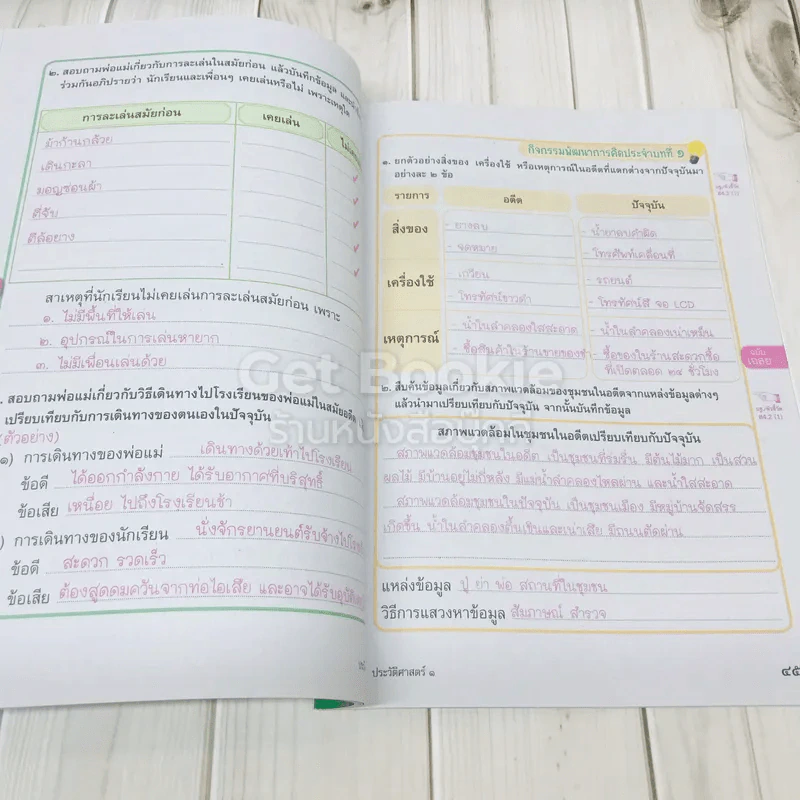 ๒. สอบถามพ่อแม่เกี่ยวกับการละเล่นในสมัยก่อน แล้วบันทึกข้อมูล และ
ร่วมกันอภิปรายว่า นักเรียนและเพื่อนๆ เคยเล่นหรือไม่ เพราะเหตุใด
การละเล่นสมัยก่อน เคยเล่น
ม้าก้านกล้วย
เดินกะลา
มอญซ่อนผ้า
ตี่จับ
ตีล้อยาง
สาเหตุที่นักเรียนไม่เคยเล่นการละเล่นสมัยก่อน เพราะ
๑. ไม่มีพื้นที่ให้เล่น
๒. อุปกรณ์ในการเล่นหายาก
๓. ไม่มีเพื่อนเล่นด้วย
สอบถามพ่อแม่เกี่ยวกับวิธีเดินทางไปโรงเรียนของพ่อแม่ในสมัยอดีต
เปรียบเทียบกับการเดินทางของตนเองในปัจจุบัน
(ตัวอย่าง)
๑) การเดินทางของพ่อแม่ เดินทางด้วยเท้าไปโรงเรียน
ข้อดี ได้ออกกำลังกาย ได้รับอากาศที่บริสุทธิ์
ข้อเสีย เหนื่อย ไปถึงโรงเรียนช้า
) การเดินทางของนักเรียน นั่งจักรยานยนต์รับจ้างไปโรงเรียน
ข้อดี สะดวก รวดเร็ว
ข้อเสีย ต้องสูดดมควันจากท่อไอเสีย และอาจได้รับอุบัติเหตุ
กิจกรรมพัฒนาการคิดประจำบทที่ ๑
๑. ยกตัวอย่างสิ่งของ เครื่องใช้ หรือเหตุการณ์ในอดีตที่แตกต่างจากปัจจุบันมา
อย่างละ ๒ ข้อ
รายการ อดีต ปัจจุบัน
สิ่งของ - ยางลบ - น้ำยาลบคำผิด
- จดหมาย - โทรศัพท์เคลื่อนที่
เครื่องใช้ - เกวียน - รถยนต์
- โทรทัศน์ขาวดำ - โทรทัศน์สี จอ LCD
เหตุการณ์ - น้ำในลำคลองใสสะอาด - น้ำในลำคลองเน่าเหม็น
- ซื้อสินค้าในร้านขายของชำ - ซื้อของในร้านสะดวกซื้อ
ที่เปิดตลอด ๒๔ ชั่วโมง
ฉบับ
เฉลย
๒. สืบค้นข้อมูลเกี่ยวกับสภาพแวดล้อมของชุมชนในอดีตจากแหล่งข้อมูลต่างๆ
แล้วนำมาเปรียบเทียบกับปัจจุบัน จากนั้นบันทึกข้อมูล
สภาพแวดล้อมในชุมชนในอดีตเปรียบเทียบกับปัจจุบัน
สภาพแวดล้อมชุมชนในอดีต เป็นชุมชนที่ร่มรื่น มีต้นไม้มาก เป็นสวน
ผลไม้ มีบ้านอยู่ไม่กี่หลัง มีแม่น้ำลำคลองไหลผ่าน และน้ำใสสะอาด
สภาพแวดล้อมชุมชนในปัจจุบัน เป็นชุมชนเมือง มีหมู่บ้านจัดสรร
เกิดขึ้น น้ำในลำคลองตื้นเขินและเน่าเสีย มีถนนตัดผ่าน
แหล่งข้อมูล ปู่ ย่า พ่อ สถานที่ในชุมชน
วิธีการแสวงหาข้อมูล สัมภาษณ์ สำรวจ
ประวัติศาสตร์ ๑
๔๕
Get Bookie